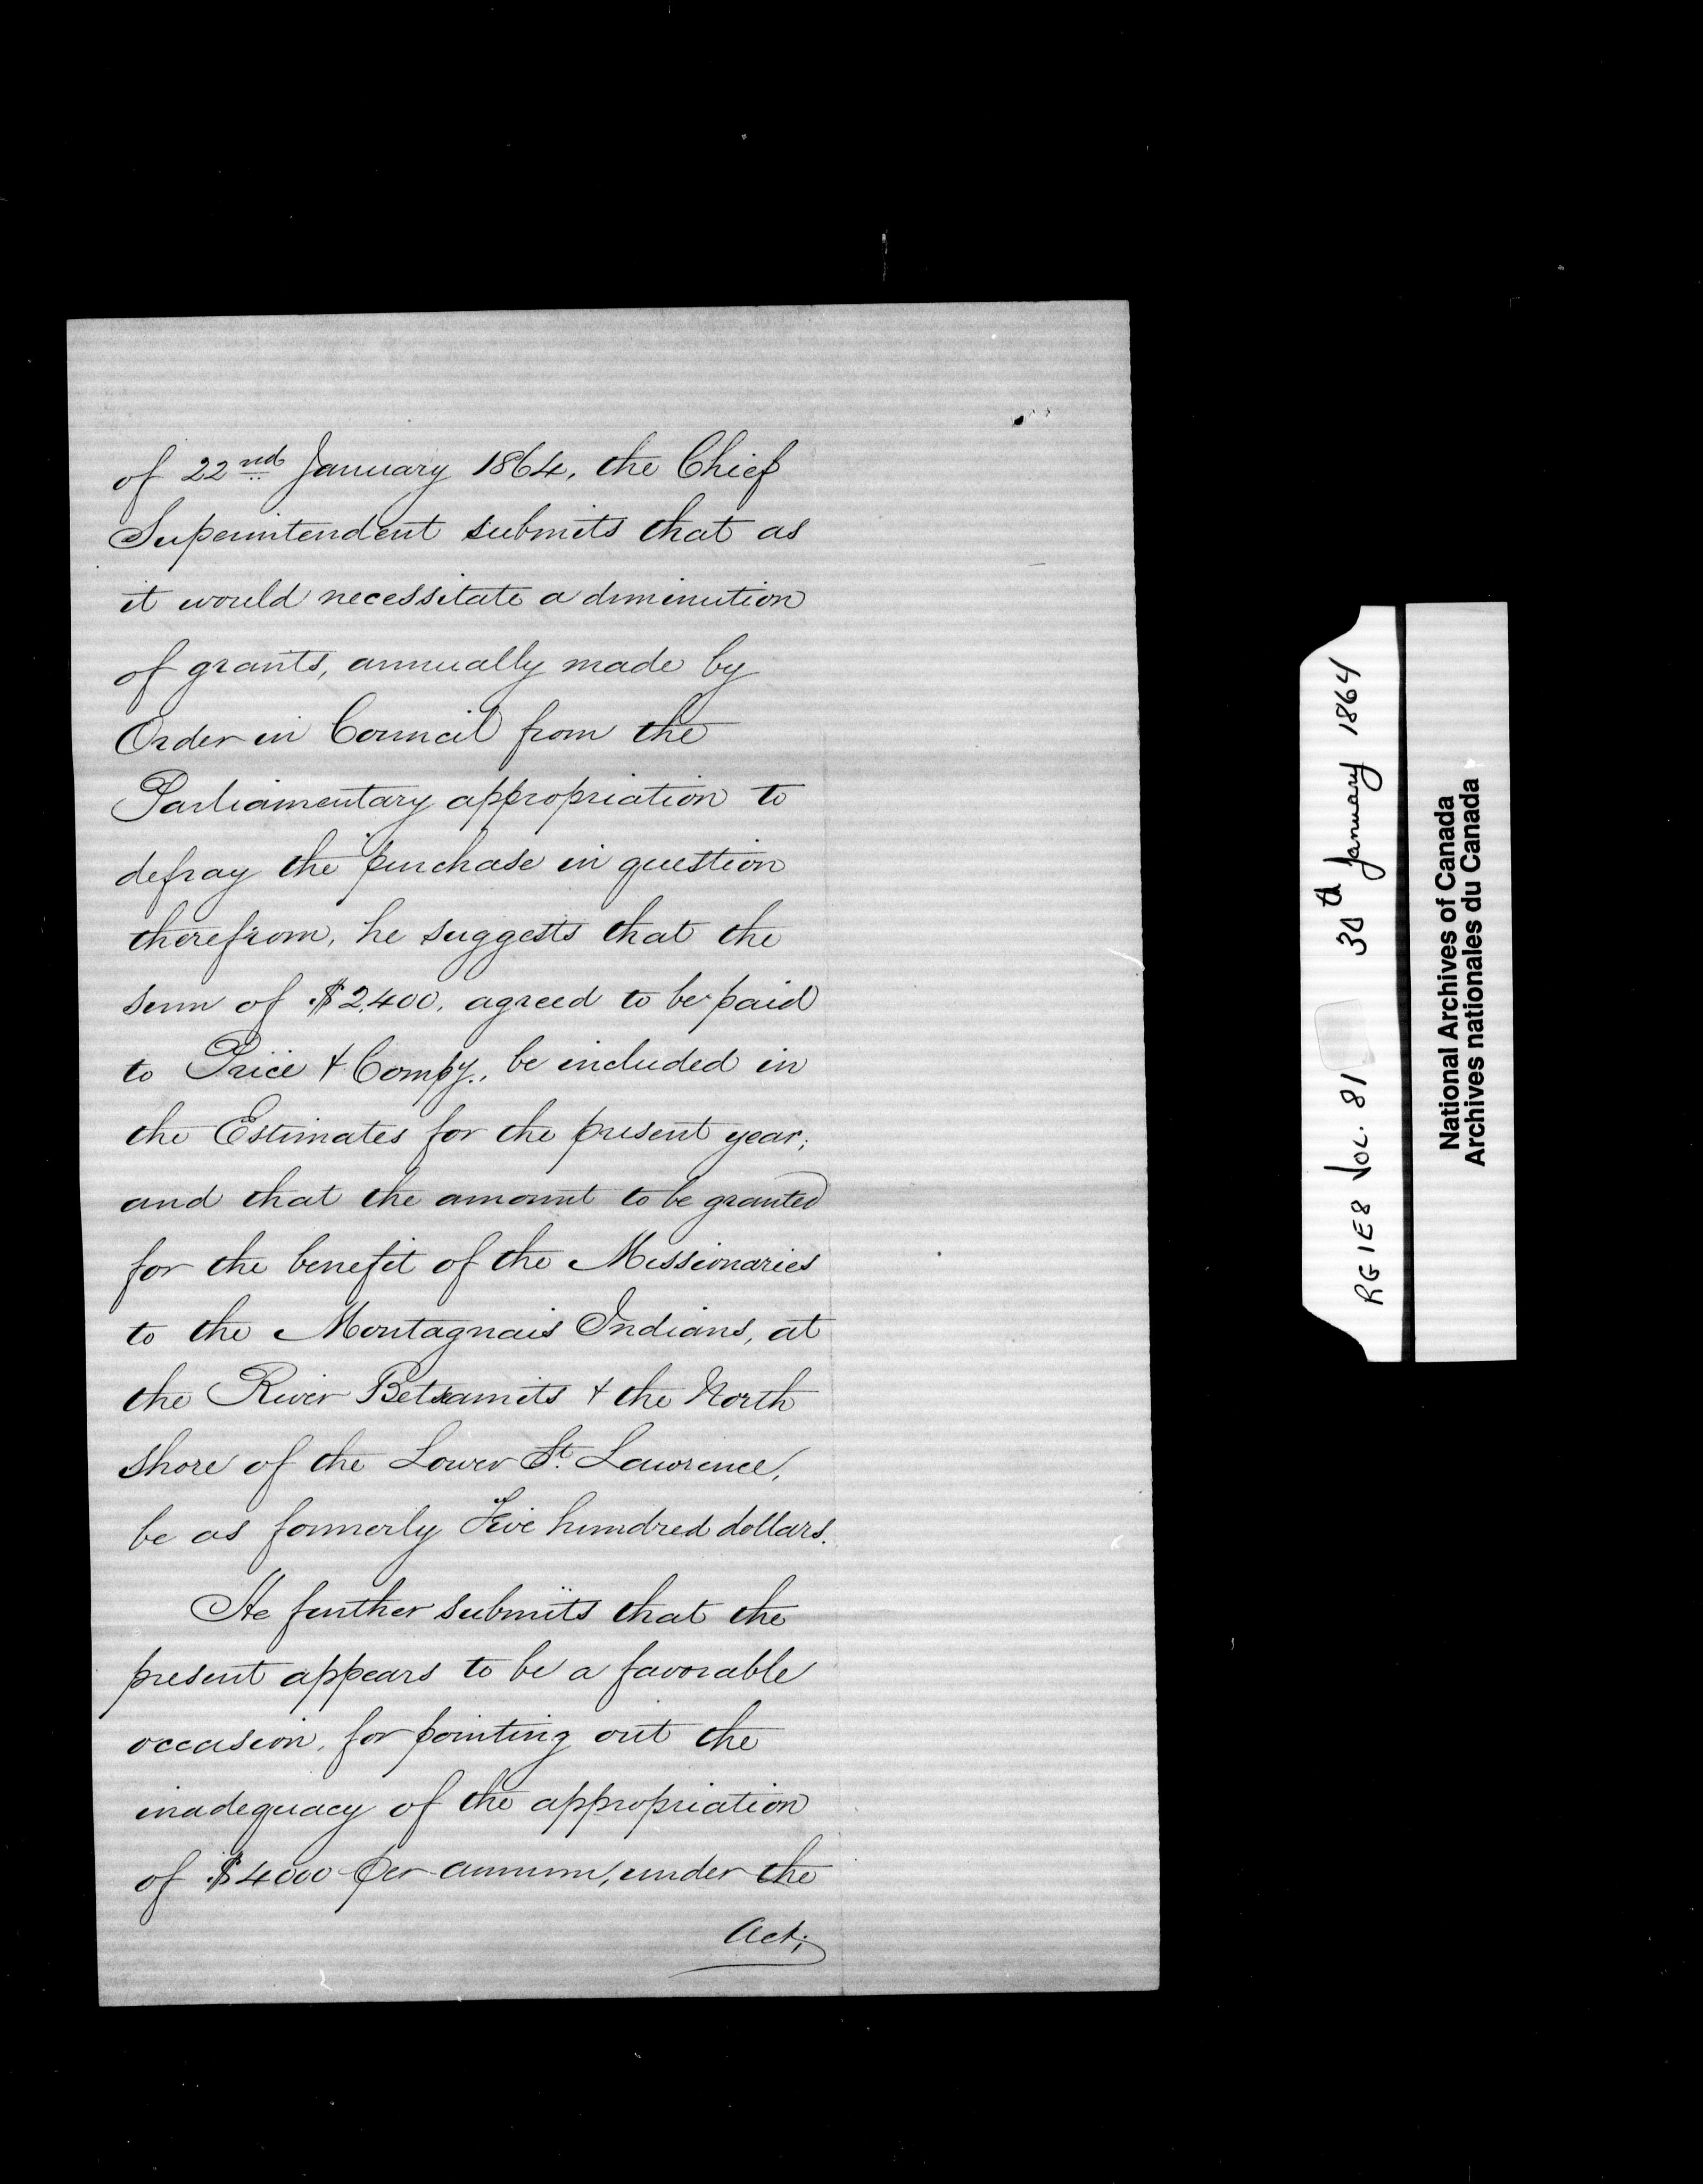 of 22nd January 1864, the Chief
Superintendent submits that as
it would necessitate a diminution
of grants, annually made by
Order in Council from the
Parliamentary appropriation to
defray the purchase in question
therefrom, he suggests that the
sum of $2,400, agreed to be paid
to Price & Compy., be included in
the Estimates for the present year;
and that the amount to be granted
for the benefit of the Missionaries
to the Montagnais Indians, at
the River Betsamits & the North
shore of the Lower St. Lawrence,
be as formerly Five hundred dollars.
He further submits that the
present appears to be a favorable
occasion, for pointing out the
inadequacy of the appropriation
of $4000 per annum, under the
Act;
RG 1E8 Vol. 81 30th January 1864
National Archives of Canada
Archives nationales du Canada